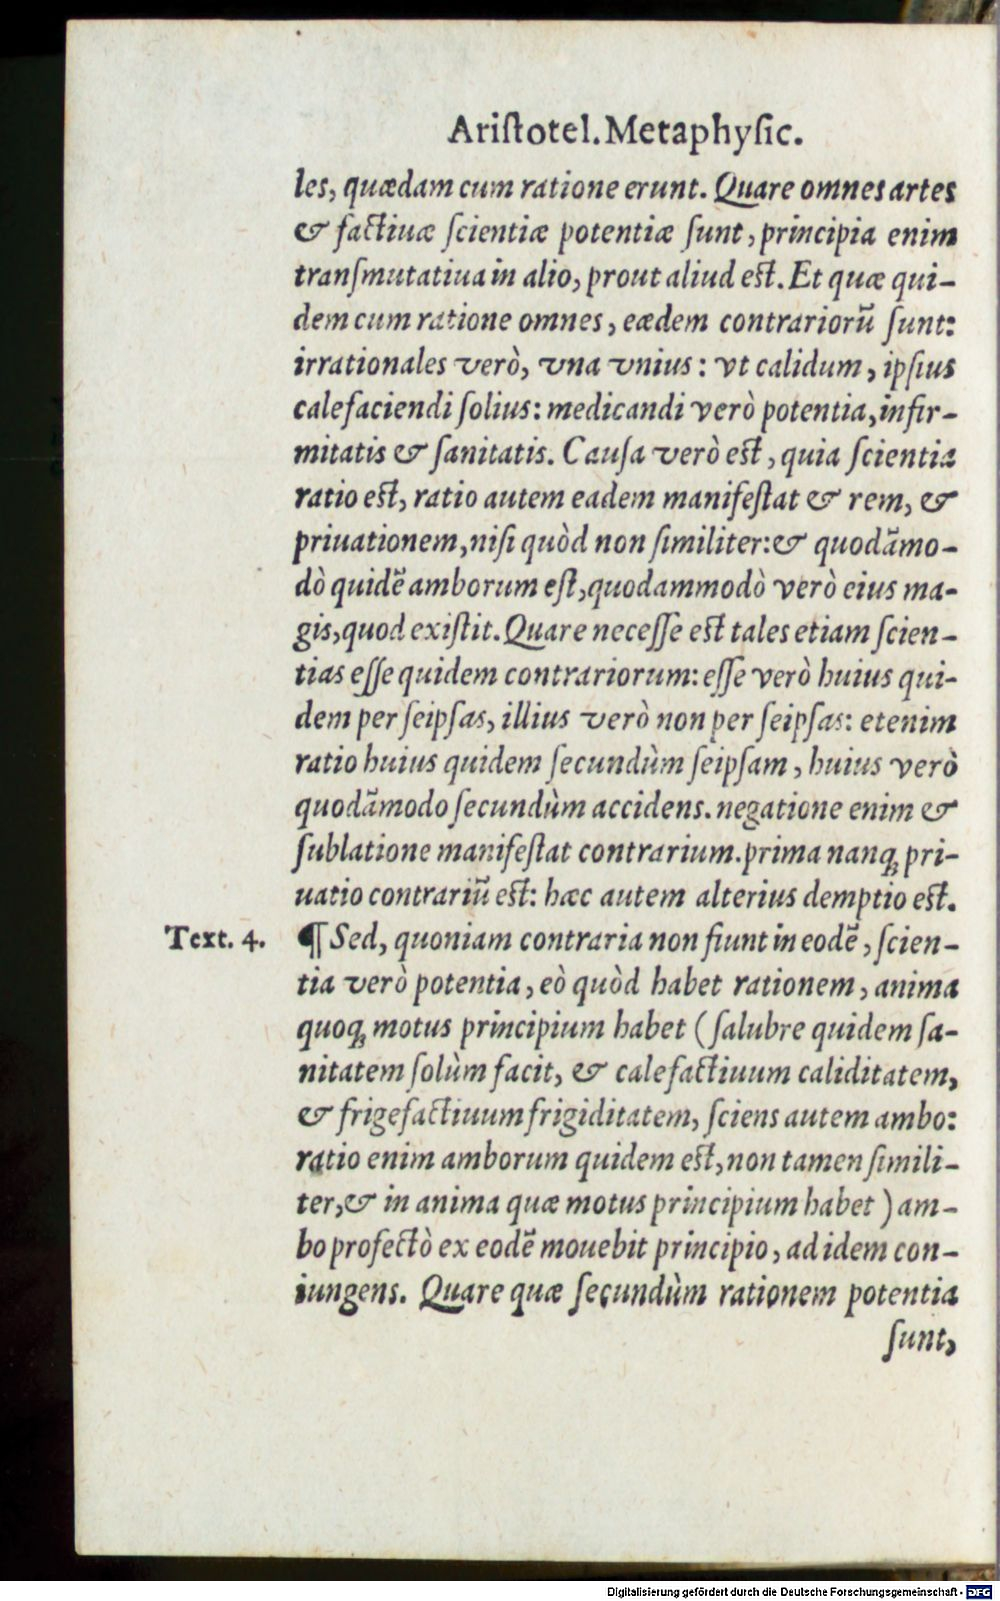 Ariſtotel. Metaphyſic.
les, quædam cum ratione erunt. Quare omnes artes
& factiuæ ſcientiæ potentiæ ſunt, principia enim
tranſmutatiua in alio, prout aliud eſt. Et quæ qui-
dem cum ratione omnes, eædem contrariorũ ſunt:
irrationales verò, vna vnius: vt calidum, ipſius
calefaciendi ſolius: medicandi verò potentia, infir-
mitatis & ſanitatis. Cauſa verò eſt, quia ſcientia
ratio eſt, ratio autem eadem manifeſtat & rem, &
priuationem, niſi quòd non ſimiliter: & quodãmo-
dò quidẽ amborum eſt, quodammodò verò eius ma-
gis, quod exiſtit. Quare neceſſe eſt tales etiam ſcien-
tias eſſe quidem contrariorum: eſſe verò huius qui-
dem per ſeipſas, illius verò non per ſeipſas: etenim
ratio huius quidem ſecundùm ſeipſam, huius verò
quodãmodo ſecundùm accidens. negatione enim &
ſublatione manifeſtat contrarium. prima nanꝗ pri-
uatio contrariũ eſt: hæc autem alterius demptio eſt.
Text. 4. ¶ Sed, quoniam contraria non fiunt in eodẽ, ſcien-
tia verò potentia, eò quòd habet rationem, anima
quoꝗ motus principium habet (ſalubre quidem ſa-
nitatem ſolùm facit, & calefactiuum caliditatem,
& frigefactiuum frigiditatem, ſciens autem ambo:
ratio enim amborum quidem eſt, non tamen ſimili-
ter, & in anima quæ motus principium habet) am-
bo profectò ex eodẽ mouebit principio, ad idem con-
iungens. Quare quæ ſecundùm rationem potentia
ſunt,
Digitalisierung gefördert durch die Deutsche Forschungsgemeinschaft - DFG